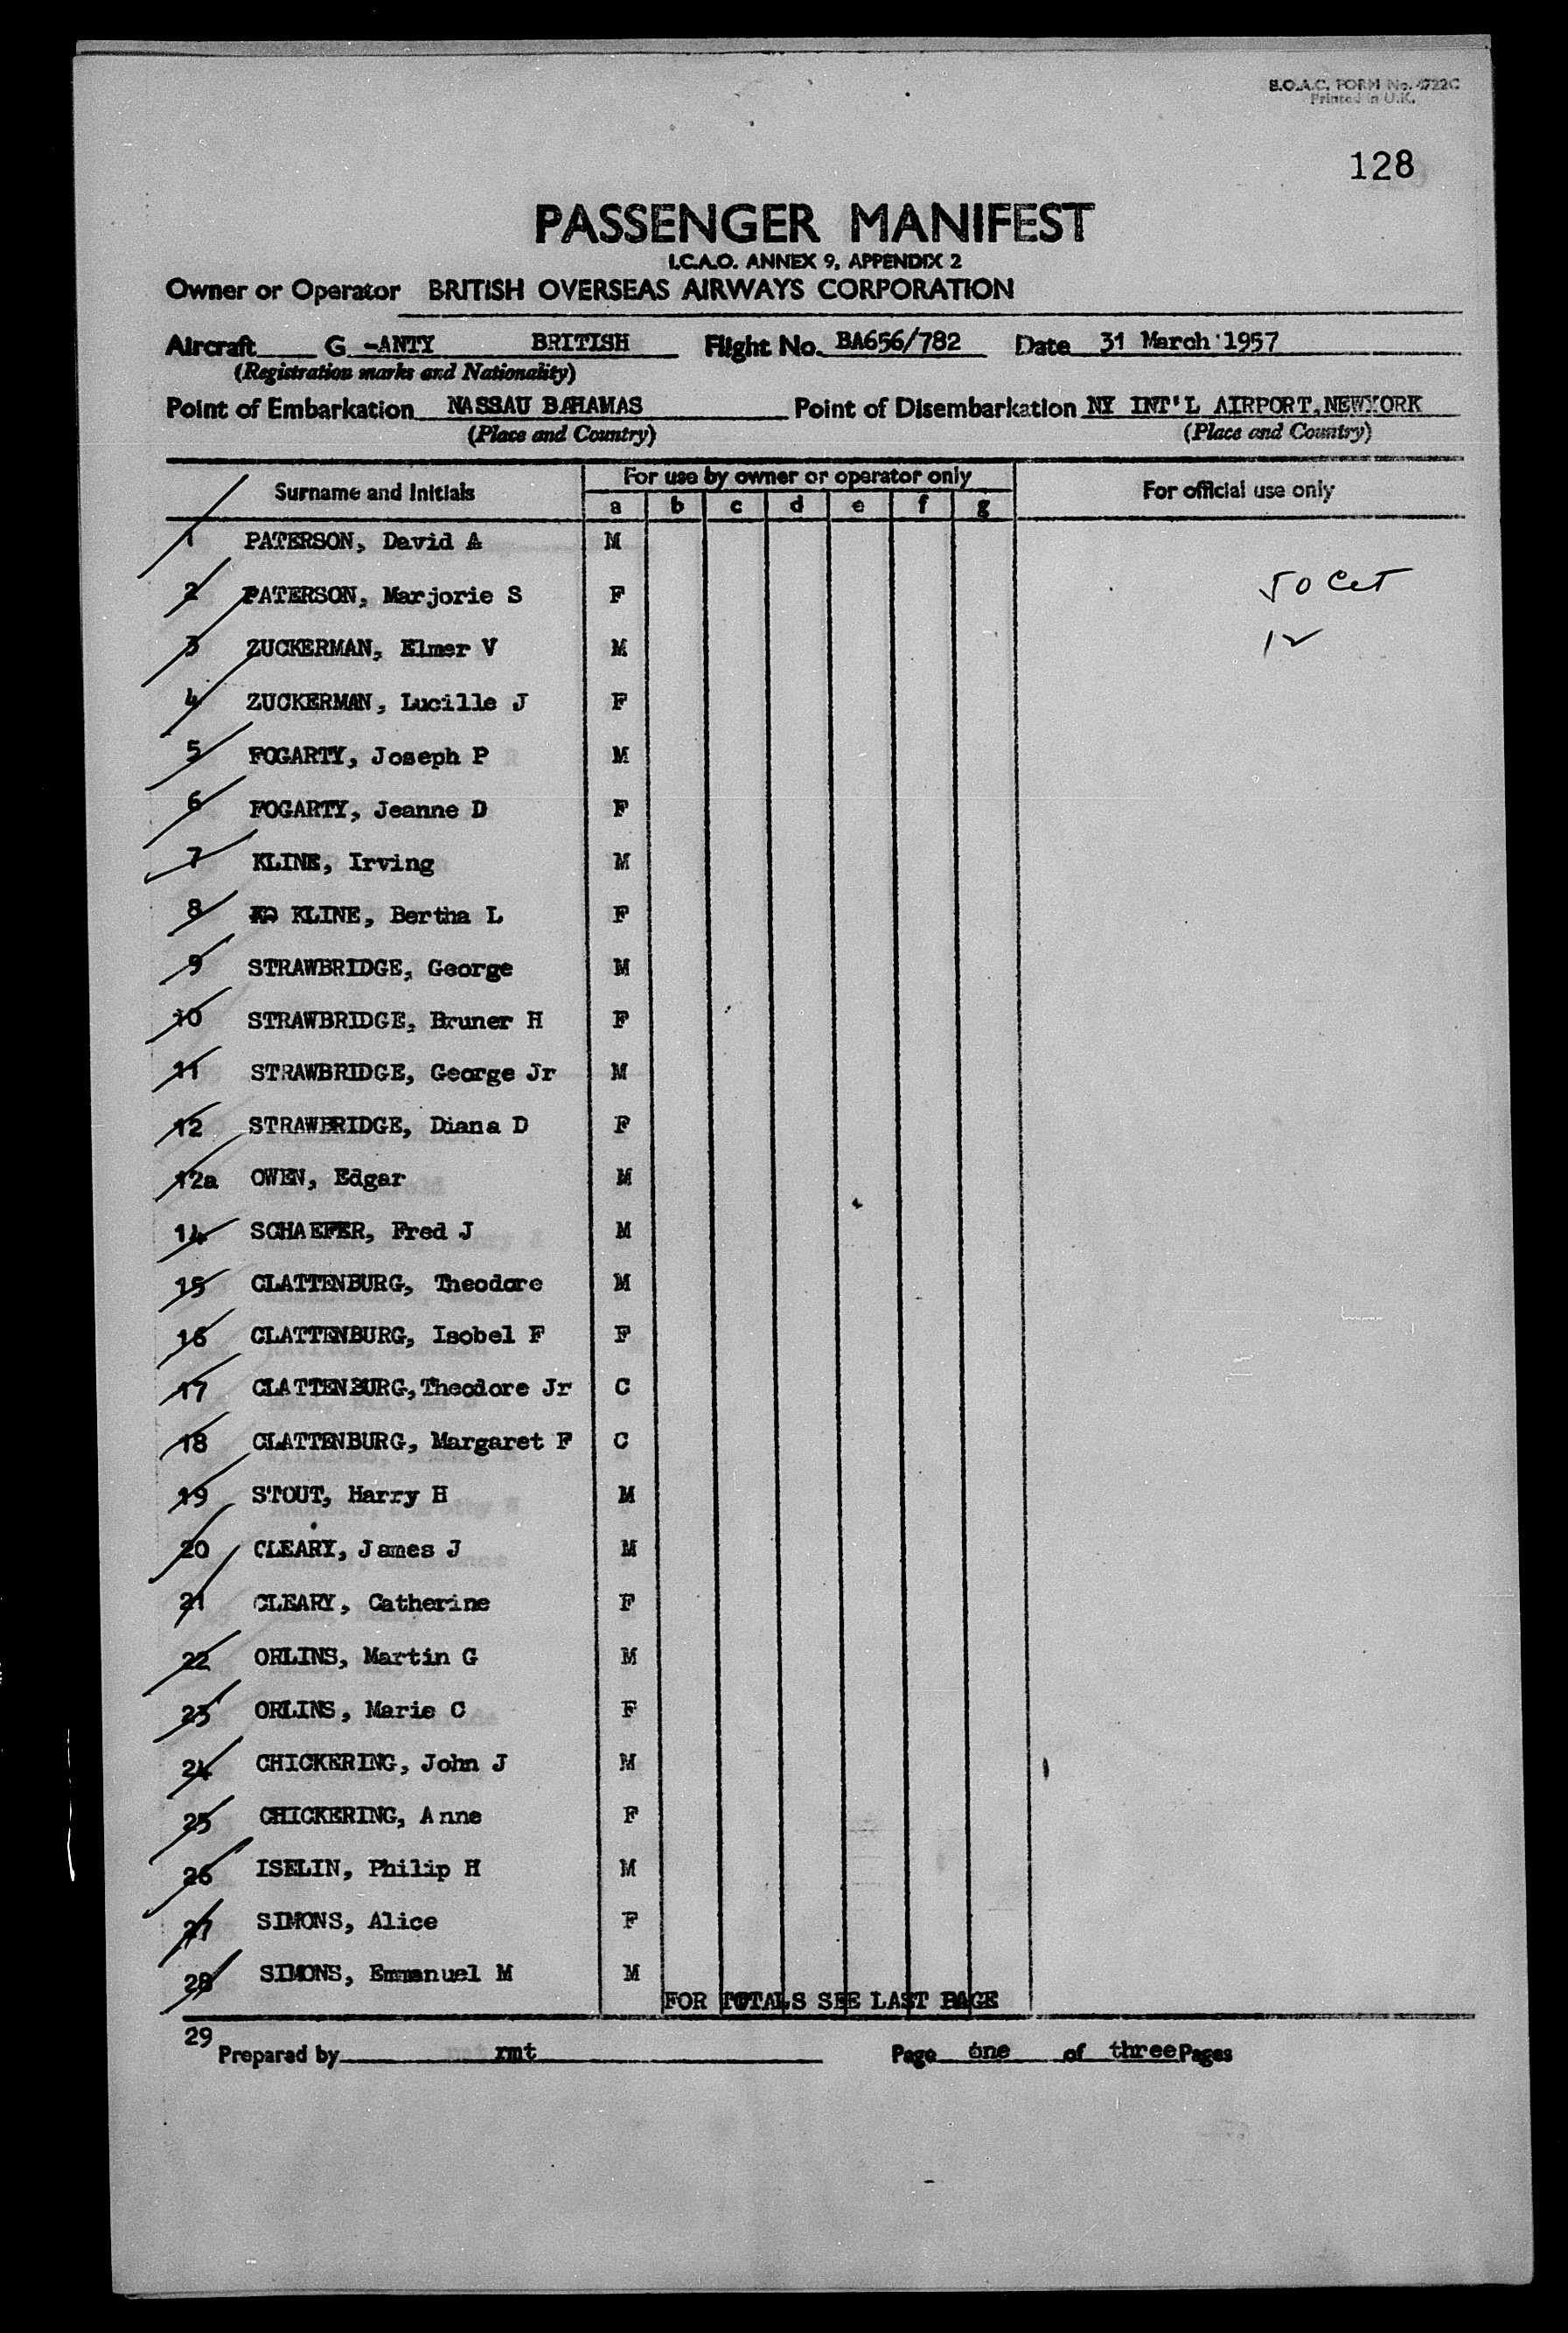 B.O.A.C. FORM No. 4722C
Printed in U.K.
128
PASSENGER MANIFEST
I.C.A.O. ANNEX 9, APPENDIX 2
Owner or Operator BRITISH OVERSEAS AIRWAYS CORPORATION
Aircraft G -ANTY BRITISH Flight No. BA656/782 Date 31 March 1957
(Registration marks and Nationality)
Point of Embarkation NASSAU BAHAMAS Point of Disembarkation NY INT'L AIRPORT,NEWYORK
(Place and Country) (Place and Country)
Surname and Initials For use by owner or operator only For official use only
a b c d e f g
1 PATERSON, David A M
2 PATERSON, Marjorie S F 50
3 ZUCKERMAN, Elmer V M 12
4 ZUCKERMAN, Lucille J F
5 FOGARTY, Joseph P M
6 FOGARTY, Jeanne D F
7 KLINE, Irving M
8 KLINE, Bertha L F
9 STRAWBRIDGE, George M
10 STRAWBRIDGE, Bruner H F
11 STRAWBRIDGE, George Jr M
12 STRAWBRIDGE, Diana D F
12a OWEN, Edgar M
14 SCHAEFER, Fred J M
15 CLATTENBURG, Theodore M
16 CLATTENBURG, Isobel F F
17 CLATTENBURG,Theodore Jr C
18 CLATTENBURG, Margaret F C
19 STOUT, Harry H M
20 CLEARY, James J M
21 CLEARY, Catherine F
22 ORLINS, Martin G M
23 ORLINS, Marie C F
24 CHICKERING, John J M
25 CHICKERING, Anne F
26 ISELIN, Philip H M
27 SIMONS, Alice F
28 SIMONS, Emmanuel M M
FOR TOTALS SEE LAST PAGE
29
Prepared by rmt Page one of three Pages